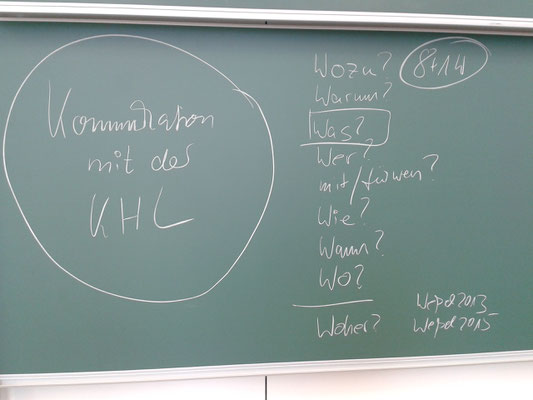 Kommunikation
mit der
KHL
Wozu? 8+1W
Warum?
Was?
Wer?
mit/für wen?
Wie?
Wann?
Wo?
Woher?
Wepol2013
Wepol2015